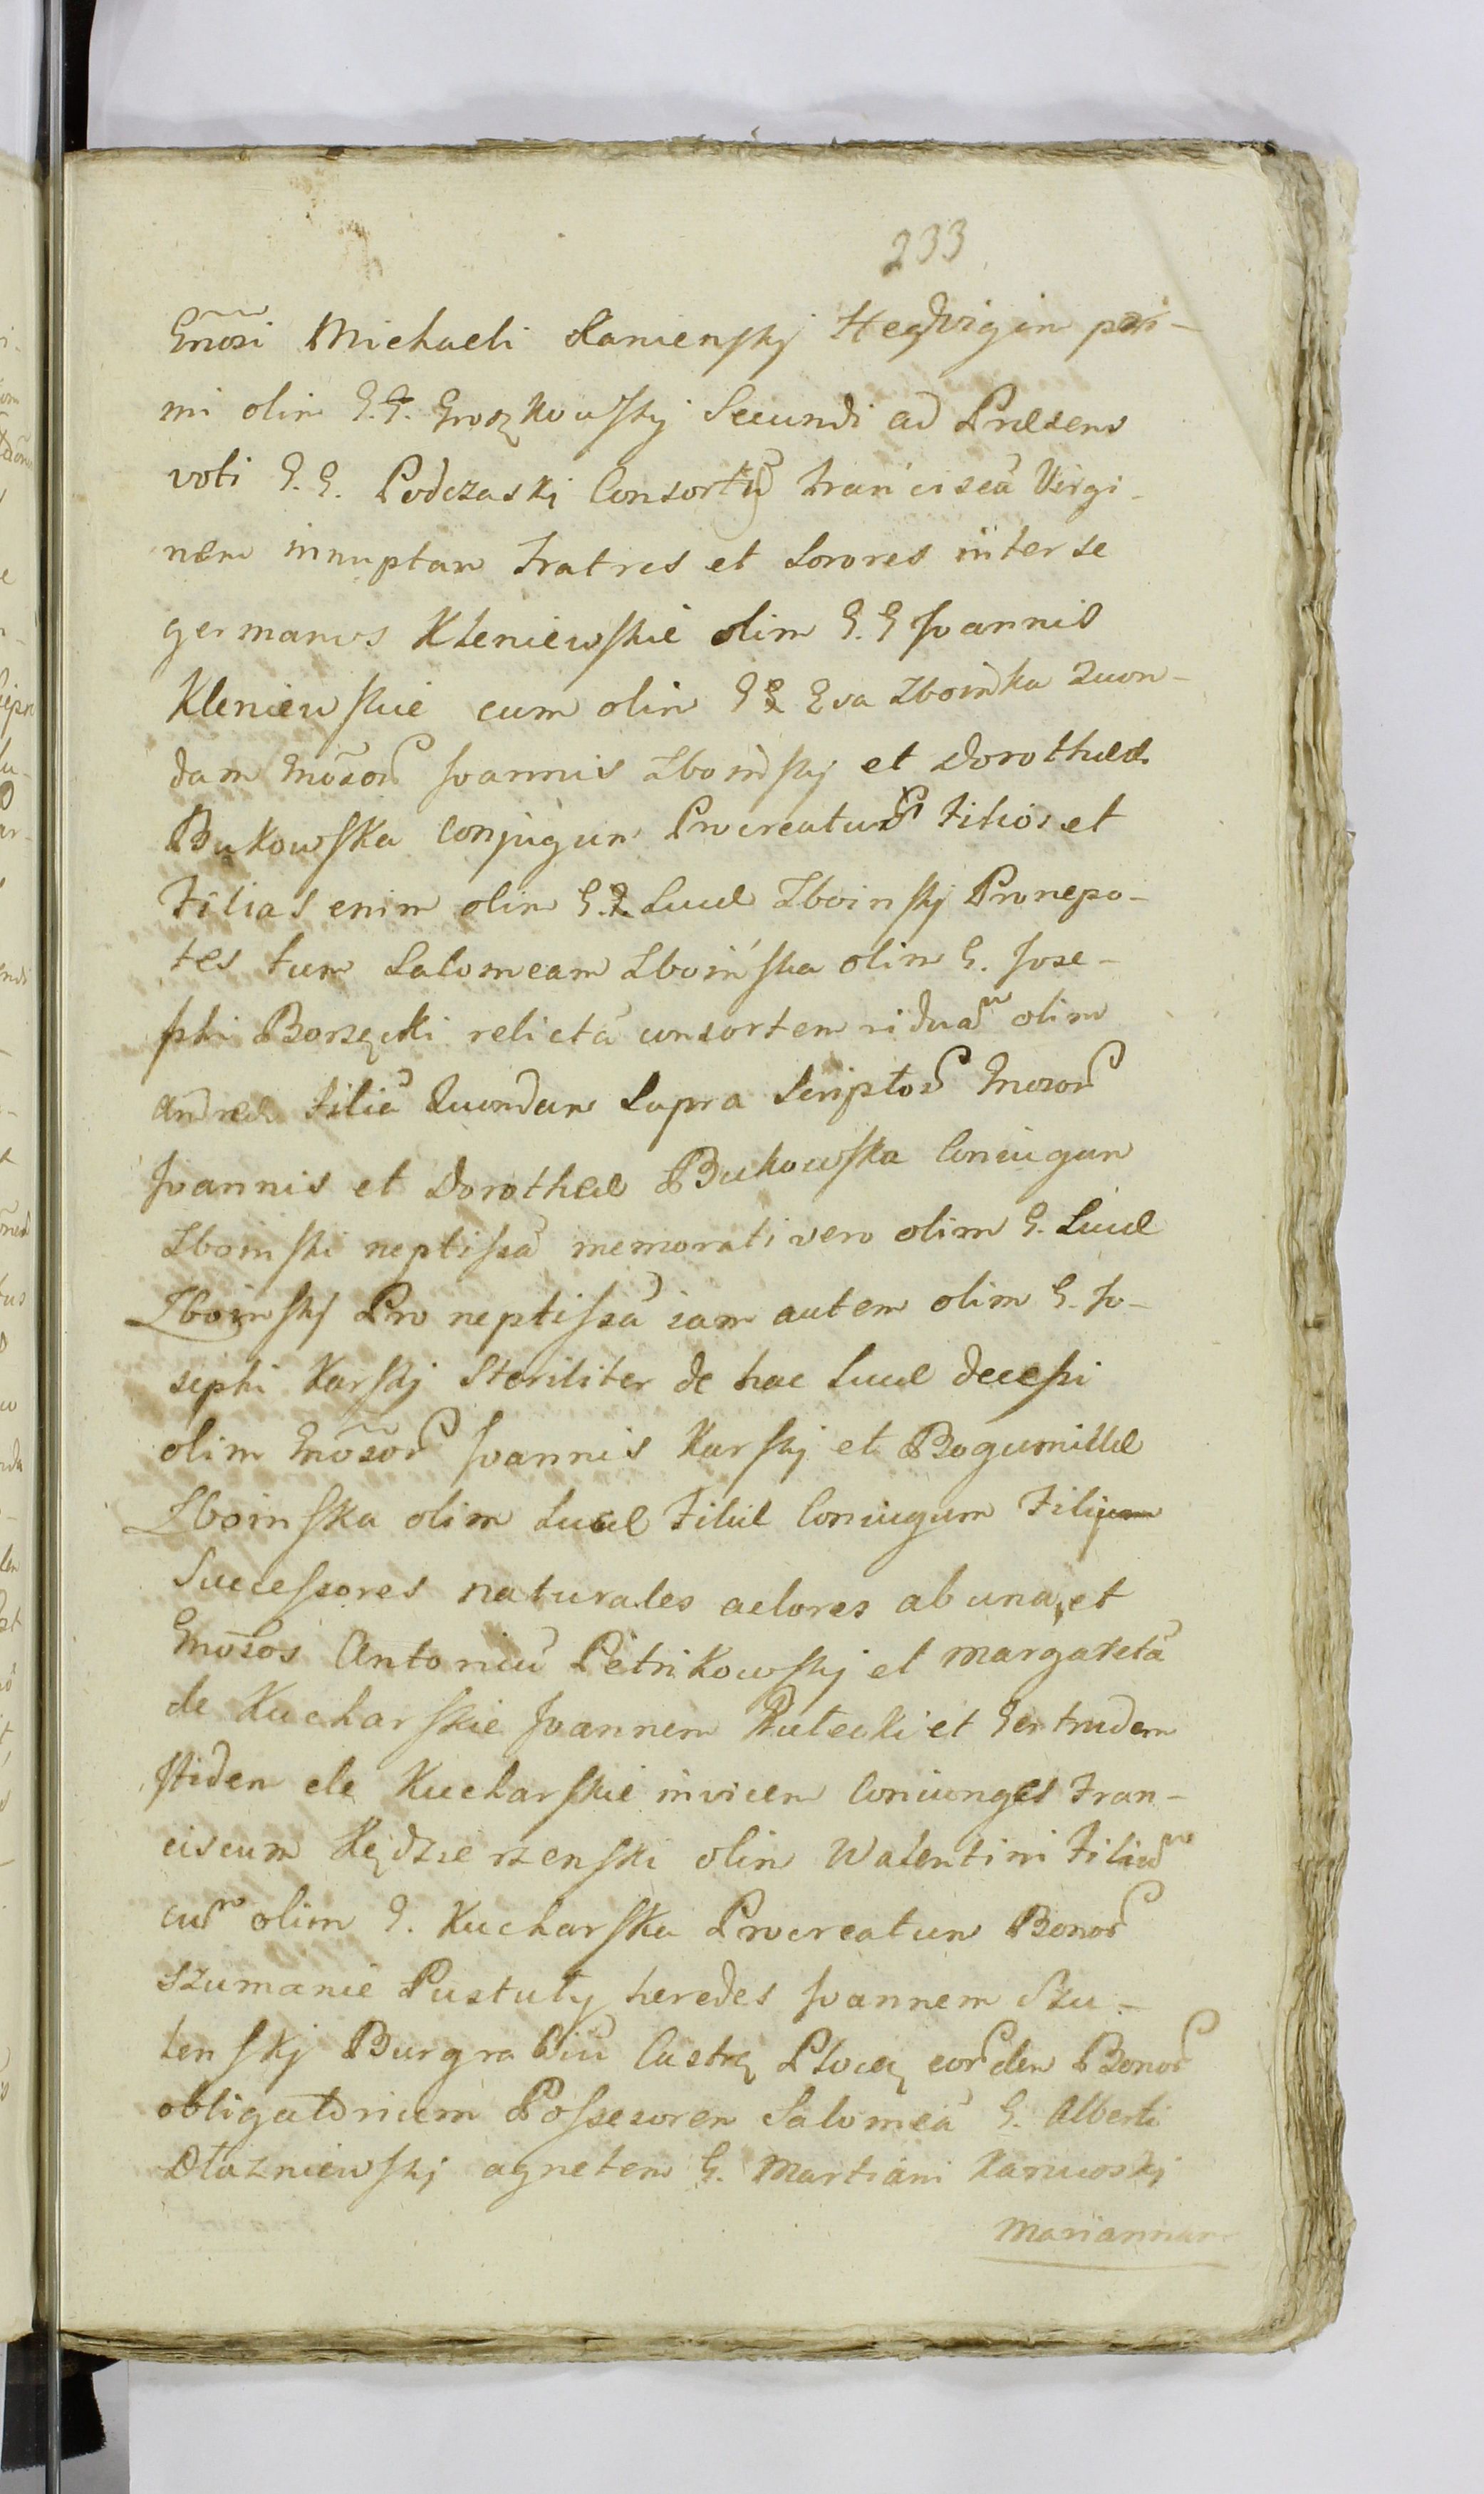 233
Gnõsi Michaeli Kanienskj Hedvigin pri-
mi olim G.G. Groszkowskj Secundi ad Præsens
voti G.G. Podczaski Consortũ Franciscã Virgi-
nem innuptam Fratres et Sorores inter se
germanos Kleniewskie olim G.G Joannis
Kleniewskie cum olim GG Eva Zboinska Quon-
dam Gnõsoꝝ Joannis Zboinskj et Dorotheæ
Bukowska Conjugum Procreatuꝝ Filios et
Filias enim olim G.G. Lucæ Zboinskj Pronepo-
tes tum Salomeam Zboińska olim G. Jose-
phi Borzęcki relictã consortem viduam olim
Andreæ Filiã Quondam Supra Scriptoꝝ Gnosoꝝ
Joannis et Dorotheæ Bukowska Coniugum
Zboinski neptissã memorati vero olim G. Lucæ
Zboinskj Pro neptissã iam autem olim G. Jo-
sephi Karskj Steriliter de hac Luce decessi
olim Gnõsoꝝ Joannis Karskj et Bogumillæ
Zboinska olim Lucæ Filiæ Coniugum Filium
Successores naturales actores ab una, et
Gnõsos Antoniũ Petrikowskj et Margaretã
de Kucharskie Joannem Rutecki et Gertrudem
itidem de Kucharskie invicem Coniunges Fran-
ciscum Kędzierzenski olim Walentini Filium
cum olim G. Kucharska Procreatum Bonoꝝ
Szumanie Pustuły heredes Joannem Szu-
lenskj Burgrabiũ Castrę Plocę eoꝝdem Bonoꝝ
obligatorium Possesorem Salomeã G. Alberti
Dłazniewskj agnetem G. Martiani Karwoskj
Mariannam